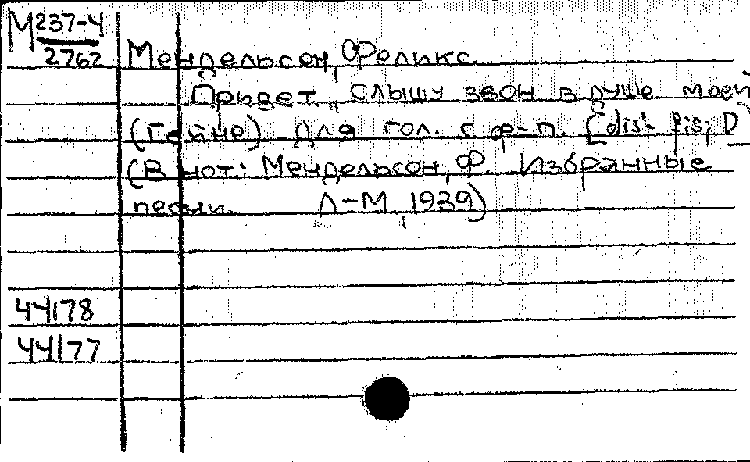 М 237-4
2762
Мендельсон, Феликс
Привет. „Слышу звон в душе моей
(Гейне) Для гол. с ф-п. [dis¹- fis; D
(В нот: Мендельсон, Ф. Избранные
песни. Л-М, 1939)
44178
44177